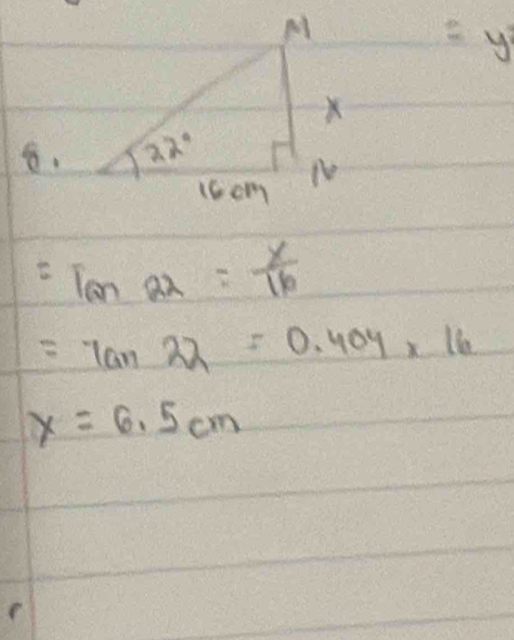 M
= y²
x
8. 22°
16 cm N
= Tan 22 = x/16
= Tan 22 = 0.404 x 16
x = 6.5 cm